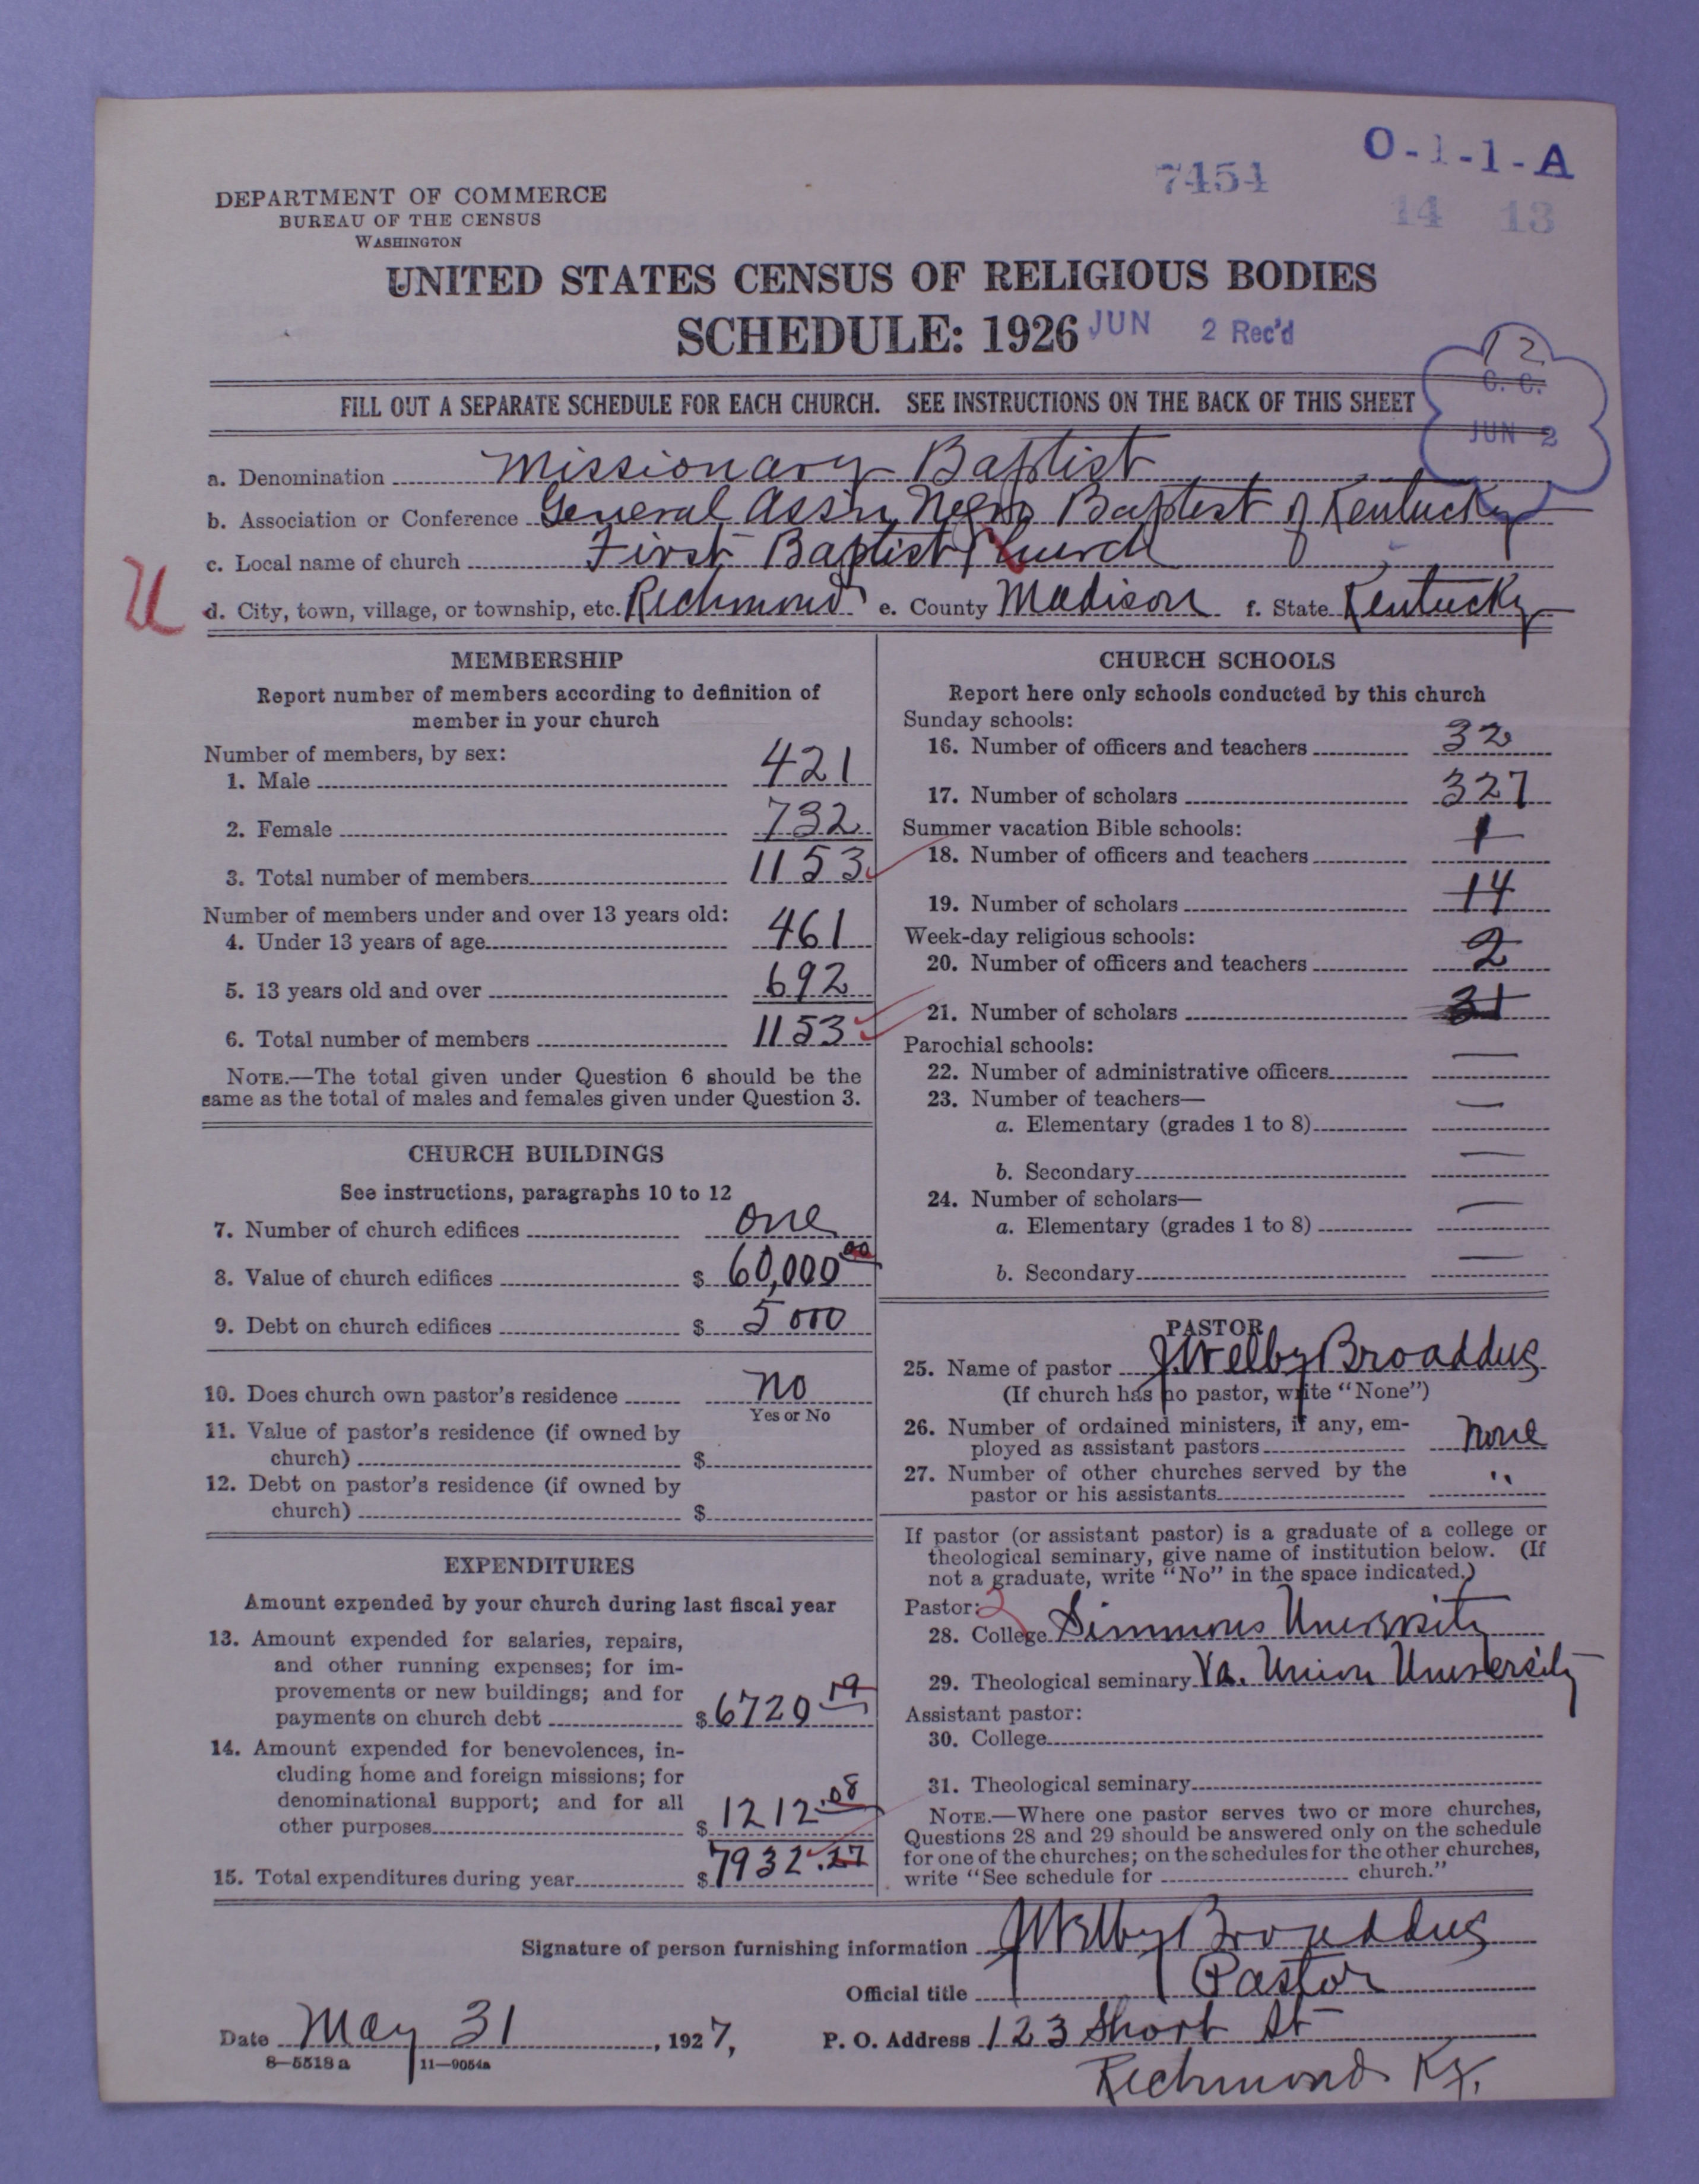 O-1-1-A
7454
14 13
DEPARTMENT OF COMMERCE
BUREAU OF THE CENSUS
WASHINGTON
UNITED STATES CENSUS OF RELIGIOUS BODIES
SCHEDULE: 1926 JUN 2 Rec'd
12
C. C.
JUN 2
FILL OUT A SEPARATE SCHEDULE FOR EACH CHURCH. SEE INSTRUCTIONS ON THE BACK OF THIS SHEET
a. Denomination Missionary Baptist
b. Association or Conference General Assn Negro Baptist of Kentucky
c. Local name of church First Baptist Church
U
d. City, town, village, or township, etc. Richmond e. County Madison f. State Kentucky
MEMBERSHIP
Report number of members according to definition of
member in your church
Number of members, by sex:
1. Male 421
2. Female 732
3. Total number of members 1153
Number of members under and over 13 years old:
4. Under 13 years of age 461
5. 13 years old and over 692
6. Total number of members 1153
NOTE.—The total given under Question 6 should be the
same as the total of males and females given under Question 3.
CHURCH BUILDINGS
See instructions, paragraphs 10 to 12
7. Number of church edifices one
8. Value of church edifices $ 60,000 00
9. Debt on church edifices $ 5000
10. Does church own pastor's residence no
Yes or No
11. Value of pastor's residence (if owned by
church) $
12. Debt on pastor's residence (if owned by
church) $
EXPENDITURES
Amount expended by your church during last fiscal year
13. Amount expended for salaries, repairs,
and other running expenses; for im-
provements or new buildings; and for
payments on church debt $ 6720 19
14. Amount expended for benevolences, in-
cluding home and foreign missions; for
denominational support; and for all
other purposes $ 1212.08
15. Total expenditures during year $ 7932.27
CHURCH SCHOOLS
Report here only schools conducted by this church
Sunday schools:
16. Number of officers and teachers 32
17. Number of scholars 327
Summer vacation Bible schools:
18. Number of officers and teachers 1
19. Number of scholars 14
Week-day religious schools:
20. Number of officers and teachers 2
21. Number of scholars 31
Parochial schools:
22. Number of administrative officers —
23. Number of teachers—
a. Elementary (grades 1 to 8) —
b. Secondary —
24. Number of scholars—
a. Elementary (grades 1 to 8) —
b. Secondary —
PASTOR
25. Name of pastor J Welby Broaddus
(If church has no pastor, write "None")
26. Number of ordained ministers, if any, em-
ployed as assistant pastors none
27. Number of other churches served by the
pastor or his assistants "
If pastor (or assistant pastor) is a graduate of a college or
theological seminary, give name of institution below. (If
not a graduate, write "No" in the space indicated.)
Pastor: 2
28. College Simmons University
29. Theological seminary Va. Union University
Assistant pastor:
30. College
31. Theological seminary
NOTE.—Where one pastor serves two or more churches,
Questions 28 and 29 should be answered only on the schedule
for one of the churches; on the schedules for the other churches,
write "See schedule for church."
Signature of person furnishing information J Welby Broaddus
Official title Pastor
Date May 31, 1927, P. O. Address 123 Short St
8—5518a 11—9054a
Richmond Ky.